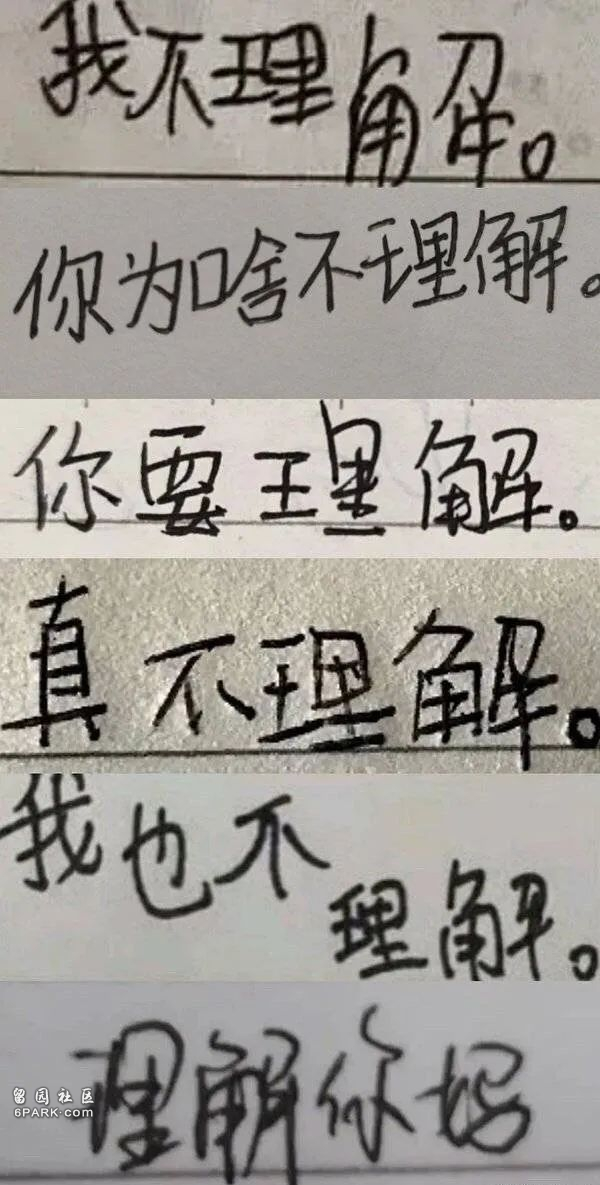 我不理解。
你为啥不理解。
你要理解。
真不理解。
我也不
理解。
理解你妈
留园社区
6PARK.com